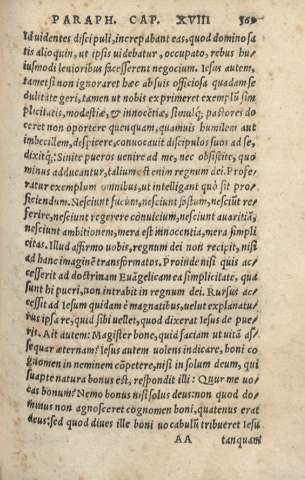 PARAPH. CAP. XVIII
Id uidentes discipuli, increpabant eas, quod domino sa⸗
tis alioquin, ut ipsis uidebatur, occupato, rebus hu⸗
iusmodi leuioribus facesserent negocium. Iesus autem,
tametsi non ignoraret hæc absuis officiosa quadam se
dulitate geri, tamen ut nobis exprimeret exemplũ sim
plicitatis, modestiæ, & innocẽtiæ, simulq́, pastores do
ceret non oportere quenquam, quamuis humilem aut
imbecillem, despicere, conuocauit discipulos suos ad se,
dixitq́: Sinite pueros uenire ad me, nec obsistite, quo
minus adducantur, talium est enim regnum dei. Profe⸗
ratur exemplum omnibus, ut intelligant quò sit pro⸗
ficiendum. Nesciunt fucum, nesciunt fastum, nesciũt re⸗
ferire, nesciunt regerere conuicium, nesciunt auaritiã,
nesciunt ambitionem, mera est innocentia, mera simpli
citas. Illud affirmo uobis, regnum dei non recipit, nisi
ad hanc imaginẽ transformatos. Proinde nisi quis ac⸗
cesserit ad doctrinam Euãgelicam ea simplicitate, qua
sunt hi pueri, non intrabit in regnum dei. Rursus ac⸗
cessit ad Iesum quidam è magnatibus, uelut explanatu⸗
rus ipsa re, quid sibi uellet, quod dixerat Iesus de pue⸗
ris. Ait autem: Magister bone, quid faciam ut uitã as⸗
sequar æternam? Iesus autem uolens indicare, boni co
gnomen in neminem cõpetere, nisi in solum deum, qui
suapte natura bonus est, respondit illi: Quur me uo⸗
cas bonum? Nemo bonus nisi solus deus: non quod do⸗
minus non agnosceret cognomen boni, quatenus erat
deus: sed quod diues ille boni uocabulũ tribueret Iesu
AA tanquam